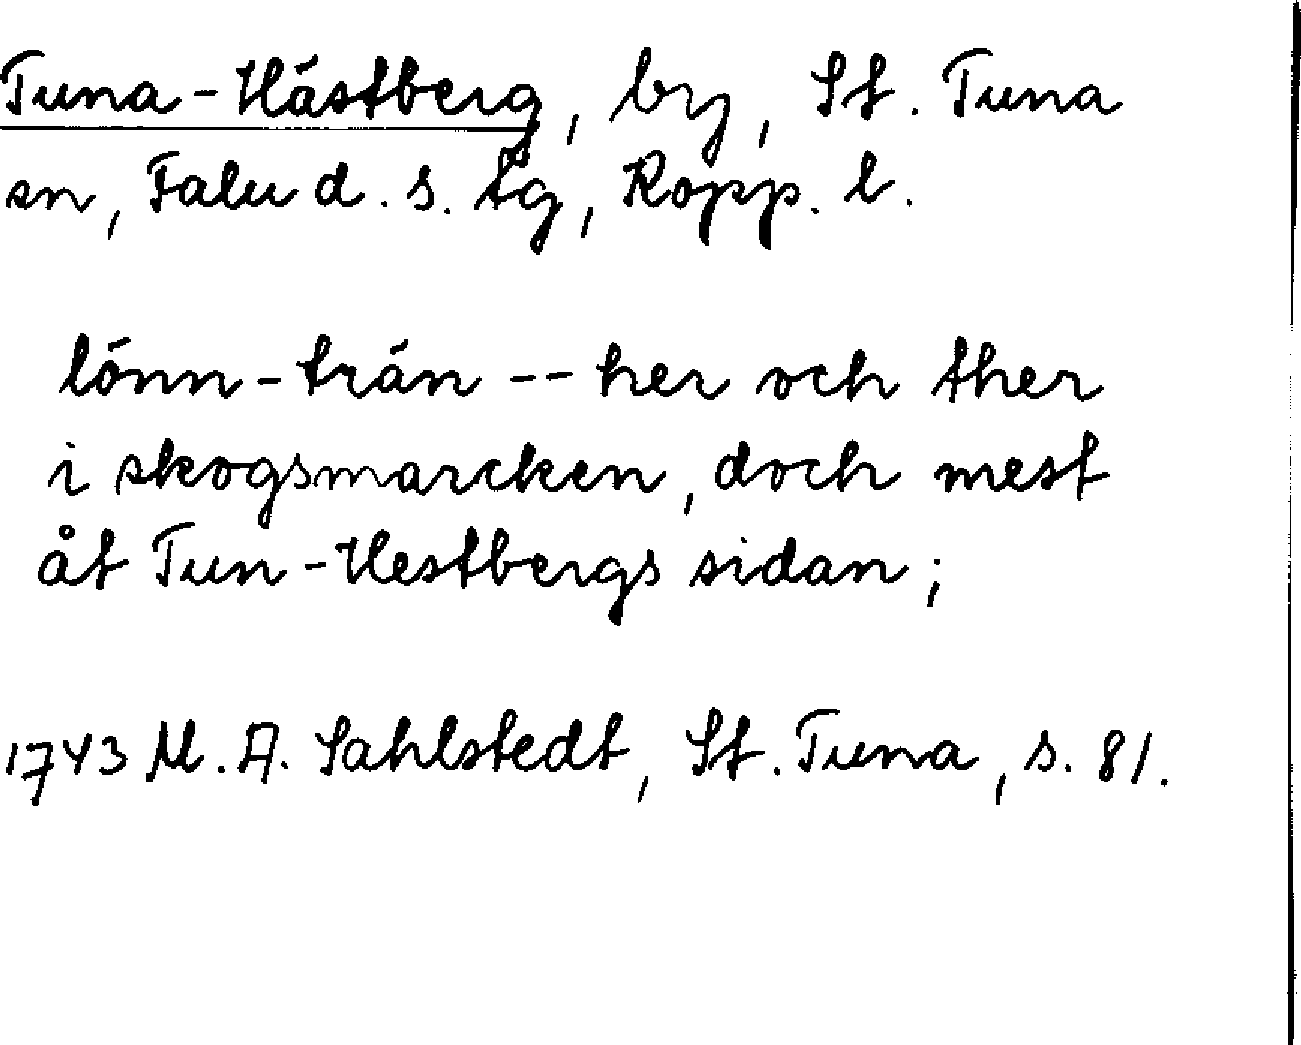 Tuna-Hästberg, by, St. Tuna
sn, Falu d. s. tg, Kopp. l.
lönn-trän -- her och ther
i skogsmarcken, doch mest
åt Tun-Hestbergs sidan;
1743 M. A. Sahlstedt, St. Tuna, s. 81.